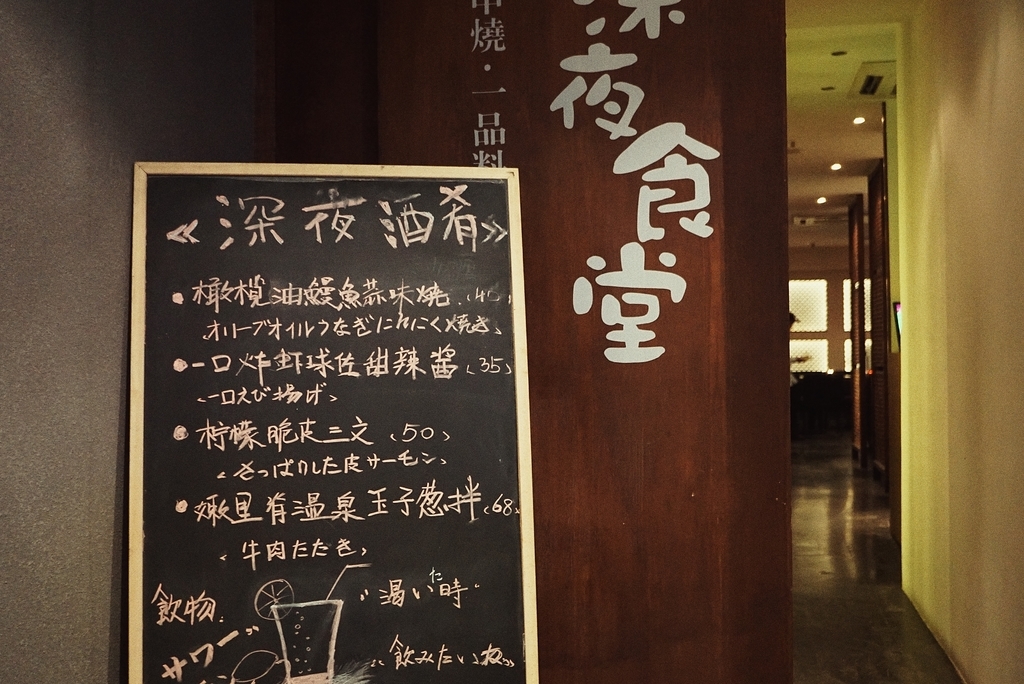 串燒・一品料
深夜食堂
《深夜酒肴》
橄欖油鰻魚蒜味燒
オリーブオイルうなぎにんにく焼き
一口炸虾球佐甜辣酱(35)
(一口えび揚げ)
柠檬脆皮三文(50)
(さっぱりした皮サーモン)
嫩里脊温泉玉子葱拌(68)
(牛肉たたき)
飲物
"渇いた時"
サワー
"飲みたい